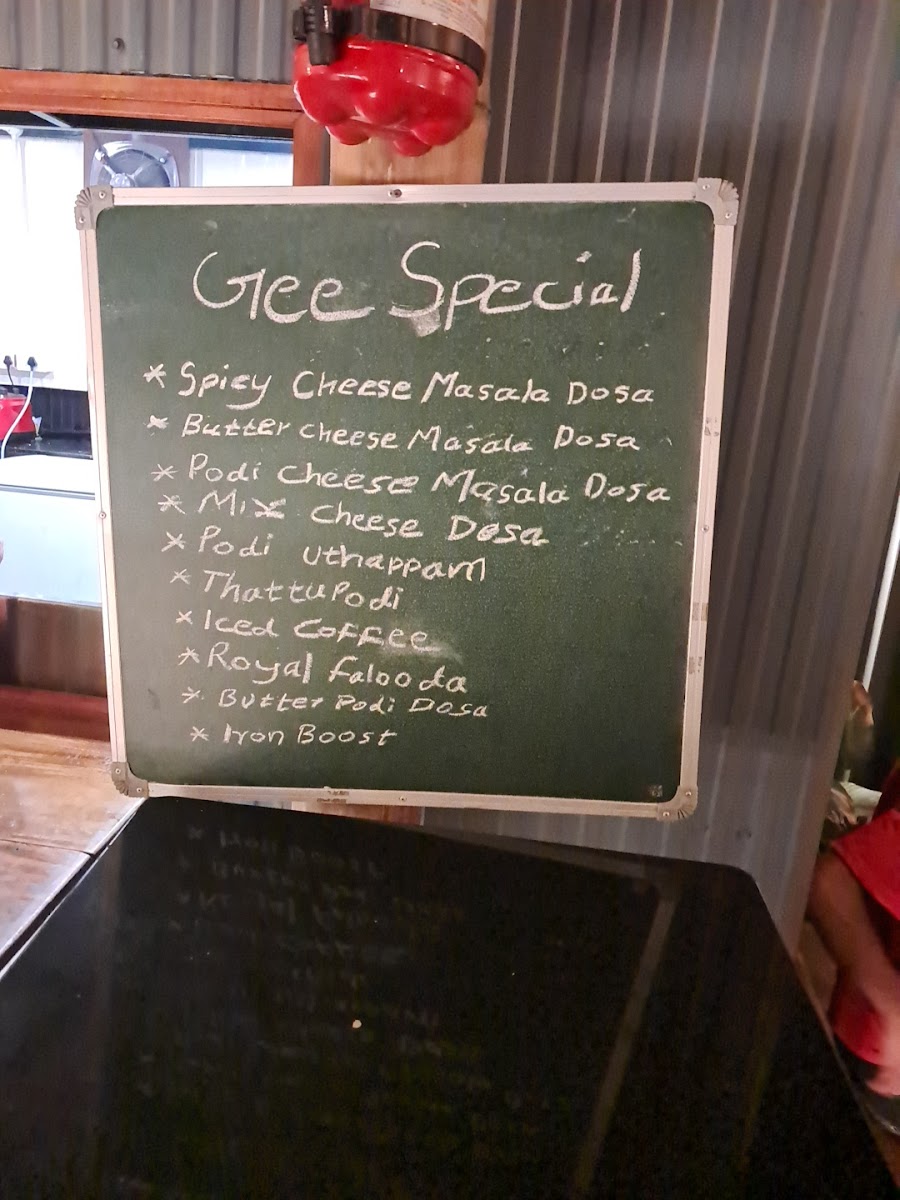 Gee Special
* Spicy Cheese Masala Dosa
* Butter cheese Masala Dosa
* Podi Cheese Masala Dosa
* Mix Cheese Dosa
* Podi Uthappam
* Thattupodi
* Iced Coffee
* Royal falooda
* Butter Podi Dosa
* Iron Boost